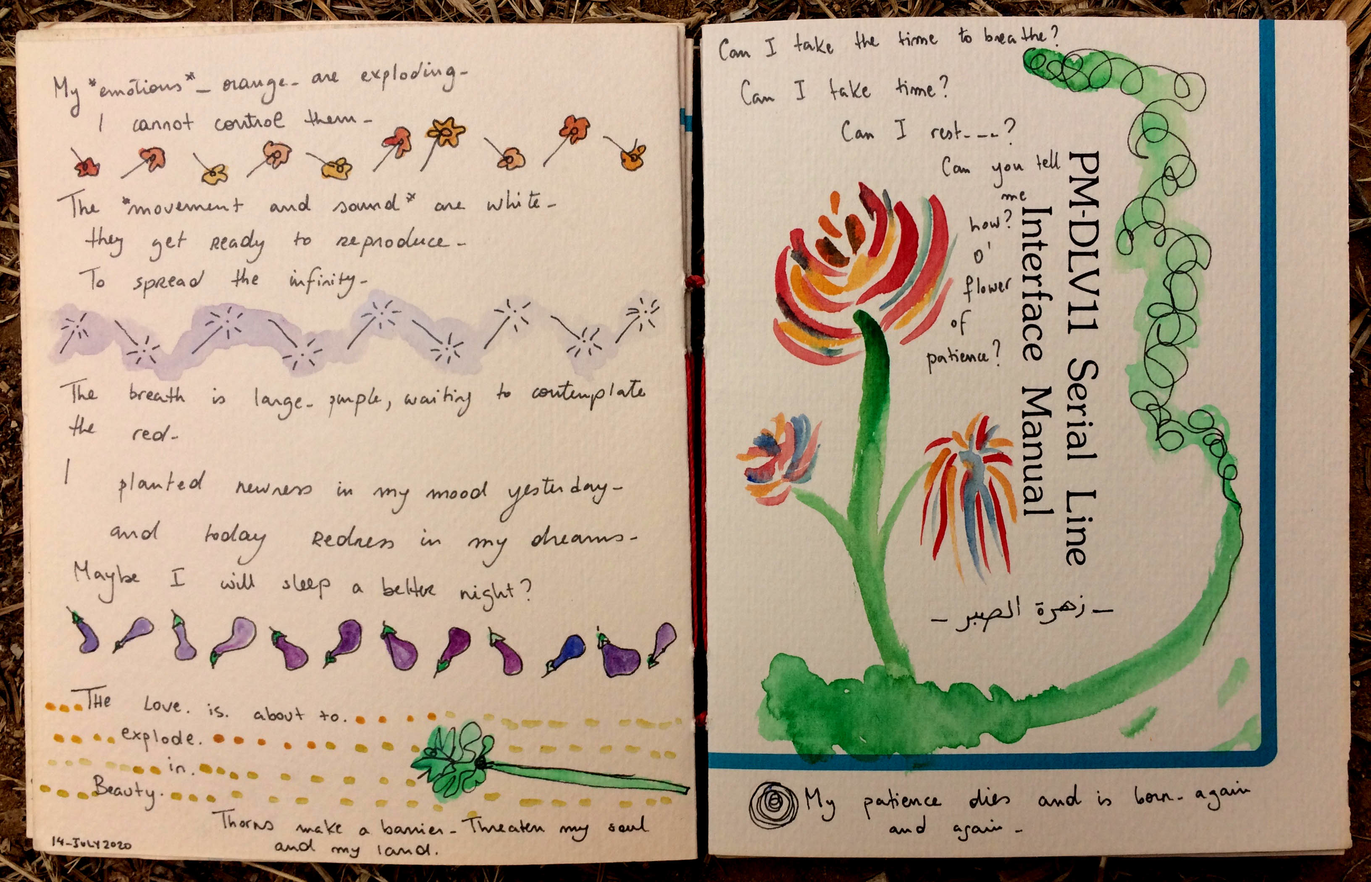 My *emotions* - orange - are exploding -
I cannot control them -
The *movement and sound* are white -
they get ready to reproduce -
To spread the infinity -
The breath is large - purple, waiting to contemplate
the red -
I planted newness in my mood yesterday -
and today Redness in my dreams -
Maybe I will sleep a better night?
THe Love. is. about to.
explode.
in.
Beauty.
Thorns make a barrier - Threaten my soul
and my land.
14-JULY 2020
Can I take the time to breathe?
Can I take time?
Can I rest---?
Can you tell
me
how?
O'
flower
of
patience?
PM-DLV11 Serial Line
Interface Manual
- زهرة الصبر -
My patience dies and is born - again
and again -